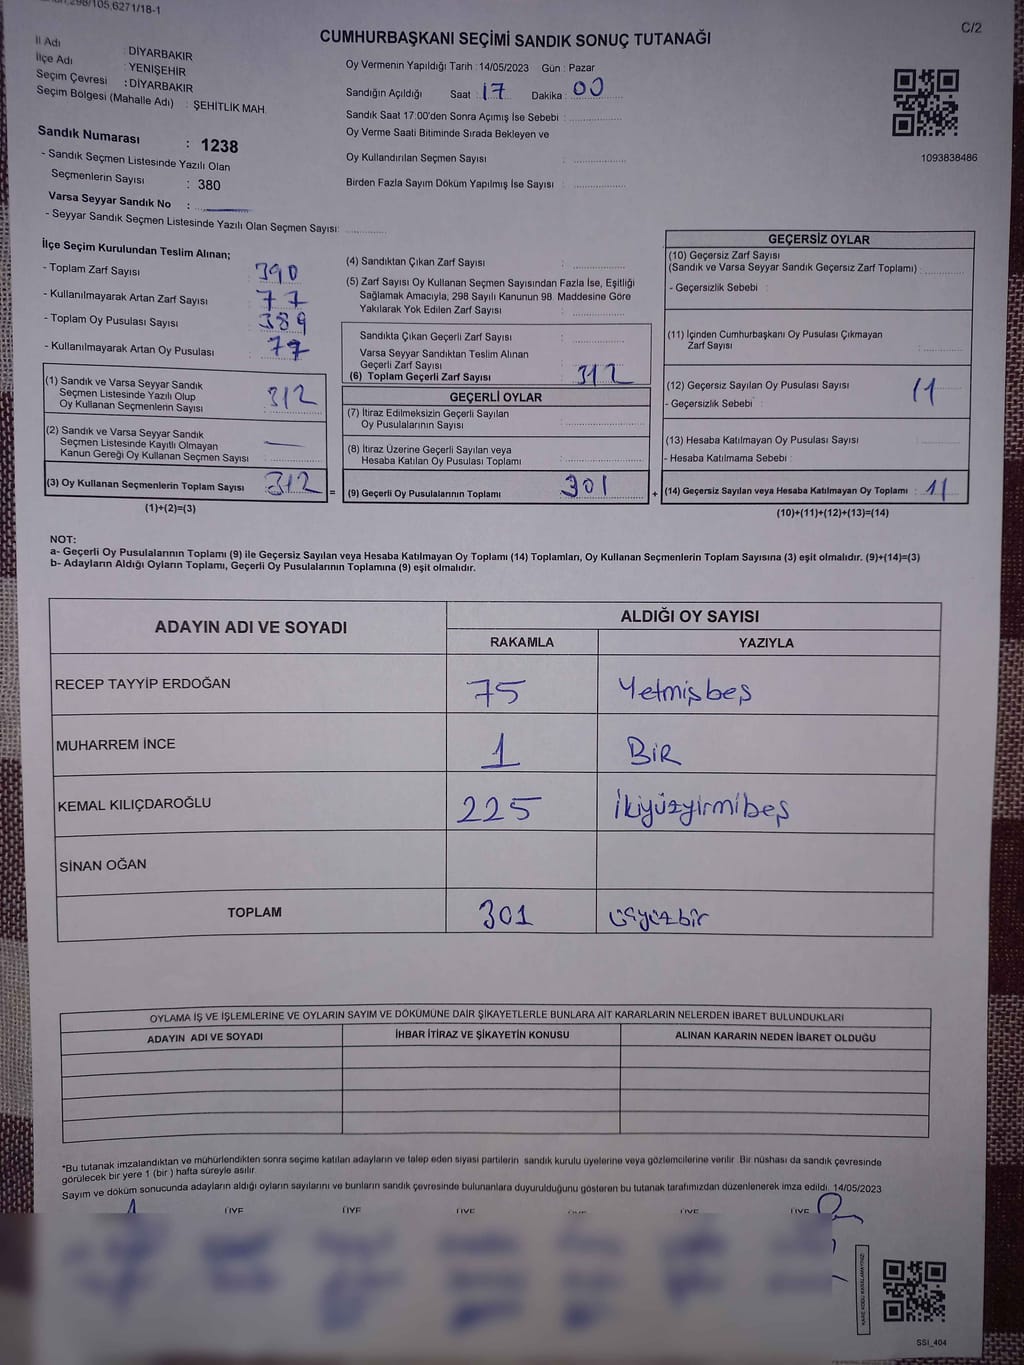 298/105,6271/18-1
C/2
CUMHURBAŞKANI SEÇİMİ SANDIK SONUÇ TUTANAĞI
İl Adı : DİYARBAKIR
İlçe Adı : YENİŞEHİR
Seçim Çevresi : DİYARBAKIR
Seçim Bölgesi (Mahalle Adı) : ŞEHİTLİK MAH.
Sandık Numarası : 1238
- Sandık Seçmen Listesinde Yazılı Olan
Seçmenlerin Sayısı : 380
Varsa Seyyar Sandık No :
- Seyyar Sandık Seçmen Listesinde Yazılı Olan Seçmen Sayısı:
Oy Vermenin Yapıldığı Tarih : 14/05/2023 Gün : Pazar
Sandığın Açıldığı Saat 17 Dakika : 00
Sandık Saat 17:00'den Sonra Açımış İse Sebebi :
Oy Verme Saati Bitiminde Sırada Bekleyen ve
Oy Kullandırılan Seçmen Sayısı :
Birden Fazla Sayım Döküm Yapılmış İse Sayısı :
1093838486
İlçe Seçim Kurulundan Teslim Alınan;
- Toplam Zarf Sayısı : 390
- Kullanılmayarak Artan Zarf Sayısı : 77
- Toplam Oy Pusulası Sayısı : 389
- Kullanılmayarak Artan Oy Pusulası : 77
(1) Sandık ve Varsa Seyyar Sandık
Seçmen Listesinde Yazılı Olup
Oy Kullanan Seçmenlerin Sayısı : 312
(2) Sandık ve Varsa Seyyar Sandık
Seçmen Listesinde Kayıtlı Olmayan
Kanun Gereği Oy Kullanan Seçmen Sayısı : —
(3) Oy Kullanan Seçmenlerin Toplam Sayısı 312 =
(1)+(2)=(3)
(4) Sandıktan Çıkan Zarf Sayısı :
(5) Zarf Sayısı Oy Kullanan Seçmen Sayısından Fazla İse, Eşitliği
Sağlamak Amacıyla, 298 Sayılı Kanunun 98. Maddesine Göre
Yakılarak Yok Edilen Zarf Sayısı :
Sandıkta Çıkan Geçerli Zarf Sayısı :
Varsa Seyyar Sandıktan Teslim Alınan
Geçerli Zarf Sayısı :
(6) Toplam Geçerli Zarf Sayısı : 312
GEÇERLİ OYLAR
(7) İtiraz Edilmeksizin Geçerli Sayılan
Oy Pusulalarının Sayısı :
(8) İtiraz Üzerine Geçerli Sayılan veya
Hesaba Katılan Oy Pusulası Toplamı :
(9) Geçerli Oy Pusulalarının Toplamı 301 +
GEÇERSİZ OYLAR
(10) Geçersiz Zarf Sayısı
(Sandık ve Varsa Seyyar Sandık Geçersiz Zarf Toplamı) :
- Geçersizlik Sebebi :
(11) İçinden Cumhurbaşkanı Oy Pusulası Çıkmayan
Zarf Sayısı :
(12) Geçersiz Sayılan Oy Pusulası Sayısı 11
- Geçersizlik Sebebi :
(13) Hesaba Katılmayan Oy Pusulası Sayısı
- Hesaba Katılmama Sebebi :
(14) Geçersiz Sayılan veya Hesaba Katılmayan Oy Toplamı : 11
(10)+(11)+(12)+(13)=(14)
NOT:
a- Geçerli Oy Pusulalarının Toplamı (9) ile Geçersiz Sayılan veya Hesaba Katılmayan Oy Toplamı (14) Toplamları, Oy Kullanan Seçmenlerin Toplam Sayısına (3) eşit olmalıdır. (9)+(14)=(3)
b- Adayların Aldığı Oyların Toplamı, Geçerli Oy Pusulalarının Toplamına (9) eşit olmalıdır.
ADAYIN ADI VE SOYADI
ALDIĞI OY SAYISI
RAKAMLA YAZIYLA
RECEP TAYYİP ERDOĞAN 75 Yetmişbeş
MUHARREM İNCE 1 BİR
KEMAL KILIÇDAROĞLU 225 İkiyüzyirmibeş
SİNAN OĞAN
TOPLAM 301 üçyüzbir
OYLAMA İŞ VE İŞLEMLERİNE VE OYLARIN SAYIM VE DÖKÜMÜNE DAİR ŞİKAYETLERLE BUNLARA AİT KARARLARIN NELERDEN İBARET BULUNDUKLARI
ADAYIN ADI VE SOYADI İHBAR İTİRAZ VE ŞİKAYETİN KONUSU ALINAN KARARIN NEDEN İBARET OLDUĞU
*Bu tutanak imzalandıktan ve mühürlendikten sonra seçime katılan adayların ve talep eden siyasi partilerin sandık kurulu üyelerine veya gözlemcilerine verilir. Bir nüshası da sandık çevresinde
görülecek bir yere 1 (bir ) hafta süreyle asılır.
Sayım ve döküm sonucunda adayların aldığı oyların sayılarını ve bunların sandık çevresinde bulunanlara duyurulduğunu gösteren bu tutanak tarafımızdan düzenlenerek imza edildi. 14/05/2023
ÜYE ÜYE ÜYE ÜYE ÜYE ÜYE
KARE KODU KARALAMAYINIZ!
SSI_404